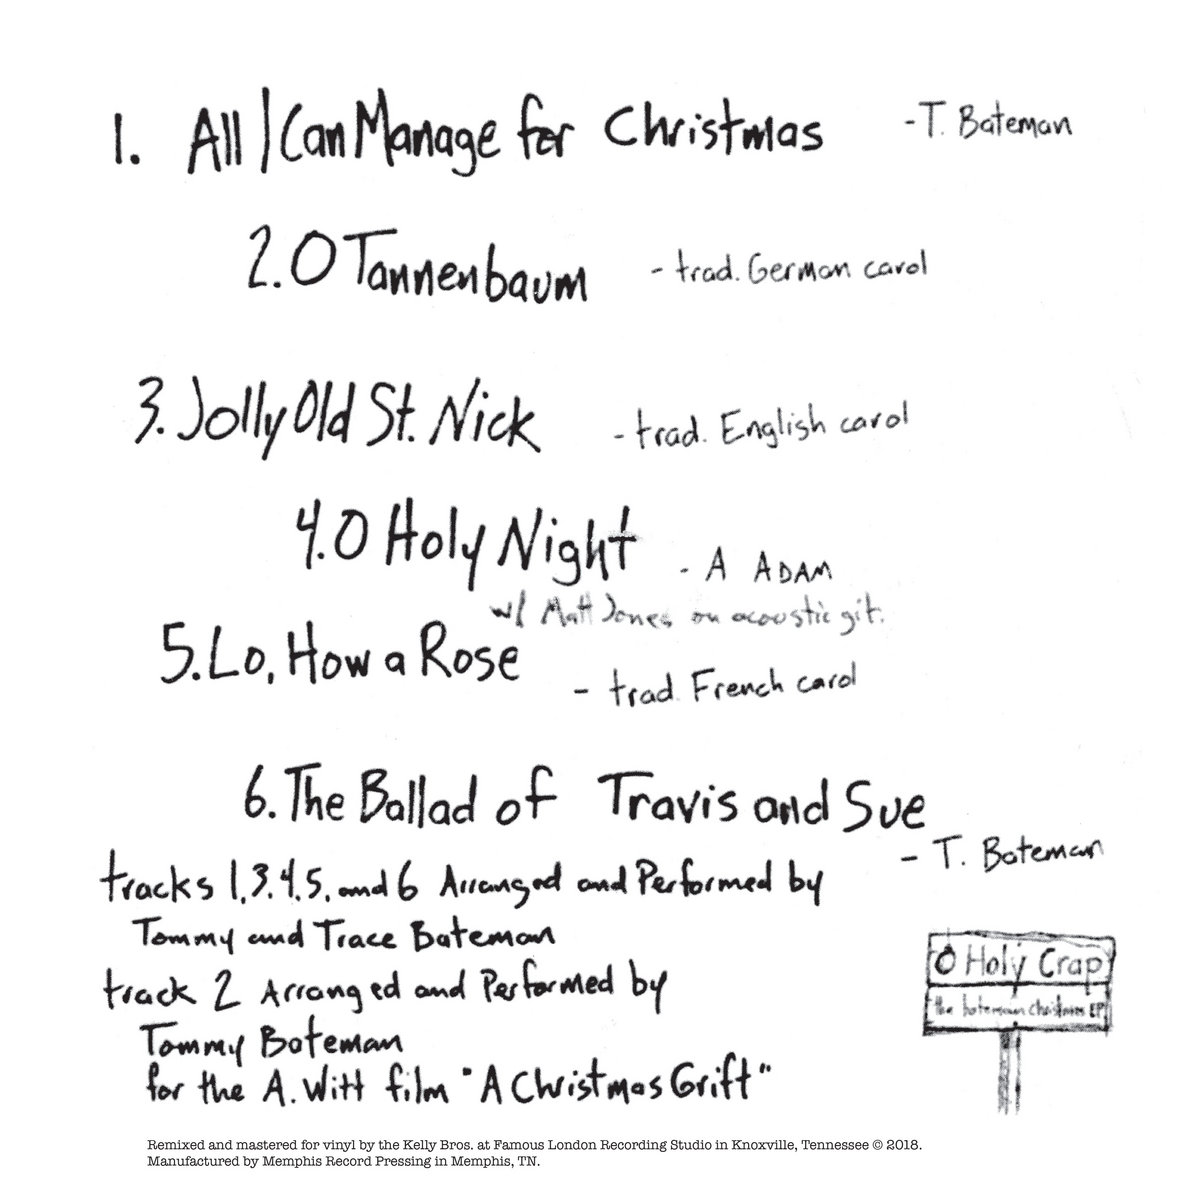 1. All I Can Manage for Christmas - T. Bateman
2. O Tannenbaum - trad. German carol
3. Jolly Old St. Nick - trad. English carol
4. O Holy Night - A ADAM
w/ Matt Jones on acoustic git.
5. Lo, How a Rose - trad. French carol
6. The Ballad of Travis and Sue
- T. Bateman
tracks 1, 3. 4. 5, and 6 Arranged and Performed by
Tommy and Trace Bateman
track 2 Arranged and Performed by
Tommy Bateman
for the A. Witt film "A Christmas Grift"
O Holy Crap
the bateman christmas EP
Remixed and mastered for vinyl by the Kelly Bros. at Famous London Recording Studio in Knoxville, Tennessee © 2018.
Manufactured by Memphis Record Pressing in Memphis, TN.